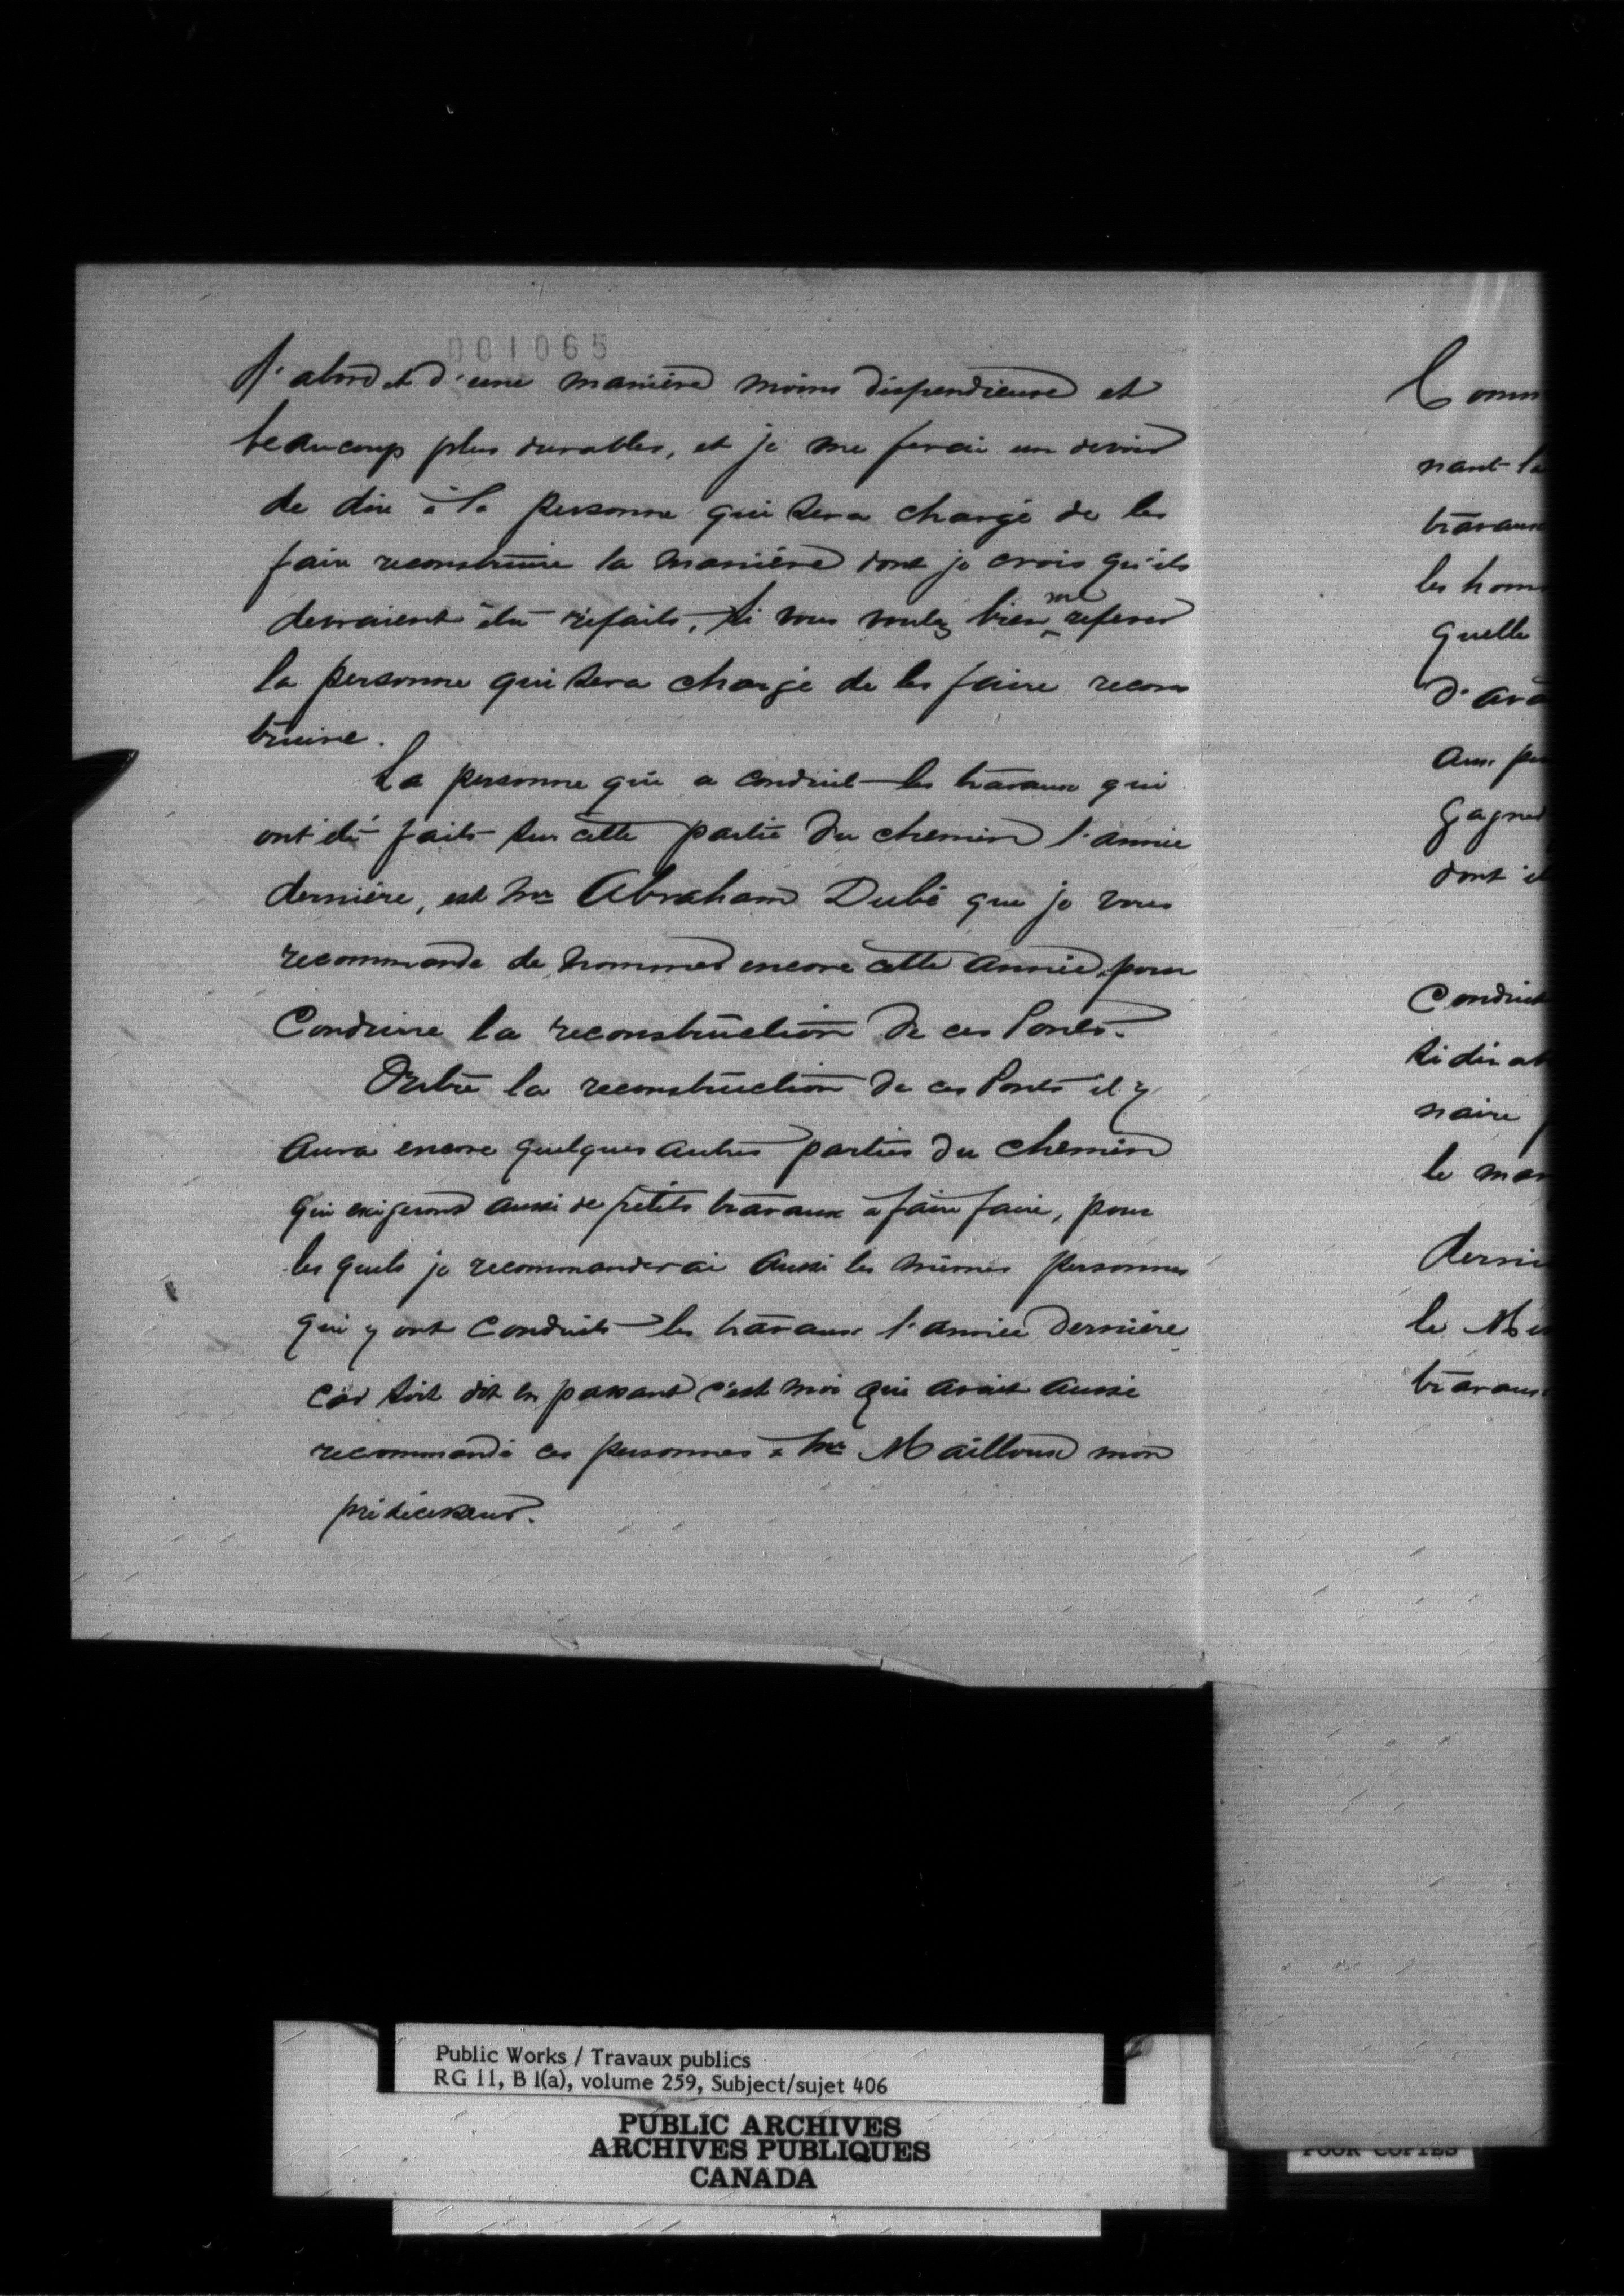 001065
d'abord et d'une manière moins dispendieuse et
beaucoup plus durables, et je me ferai un devoir
de dire à la personne qui sera chargé de les
faire reconstruire la manière dont je crois qu'ils
devraient être refaits, si vous voulez bien me referer
la personne qui sera chargé de les faire recons
truire.
La personne qui a conduit les travaux qui
ont été faits sur cette partie du chemin l'année
dernière, est Mr Abraham Dubé que je vous
recommande de nommer encore cette année, pour
Conduire la reconstruction de ces Ponts.
Outre la reconstruction de ces Ponts il y
aura encore quelques autres parties du chemin
qui exigeront aussi de petits travaux à faire faire, pour
les quels je recommanderai aussi les mêmes personnes
qui y ont conduits les travaux l'année dernière,
car soit dit en passant c'est moi qui avait aussi
recommandé ces personnes à Mr Mailloux mon
prédécesseur.
Comm
nant la
travaux
les hom
quelle
d'ava
aux pe
gagner
dont il
Conduit
si dir at
naire
le man
derni
le Me
travaux
Public Works / Travaux publics
RG 11, B 1(a), volume 259, Subject/sujet 406
PUBLIC ARCHIVES
ARCHIVES PUBLIQUES
CANADA
POOR COPIES